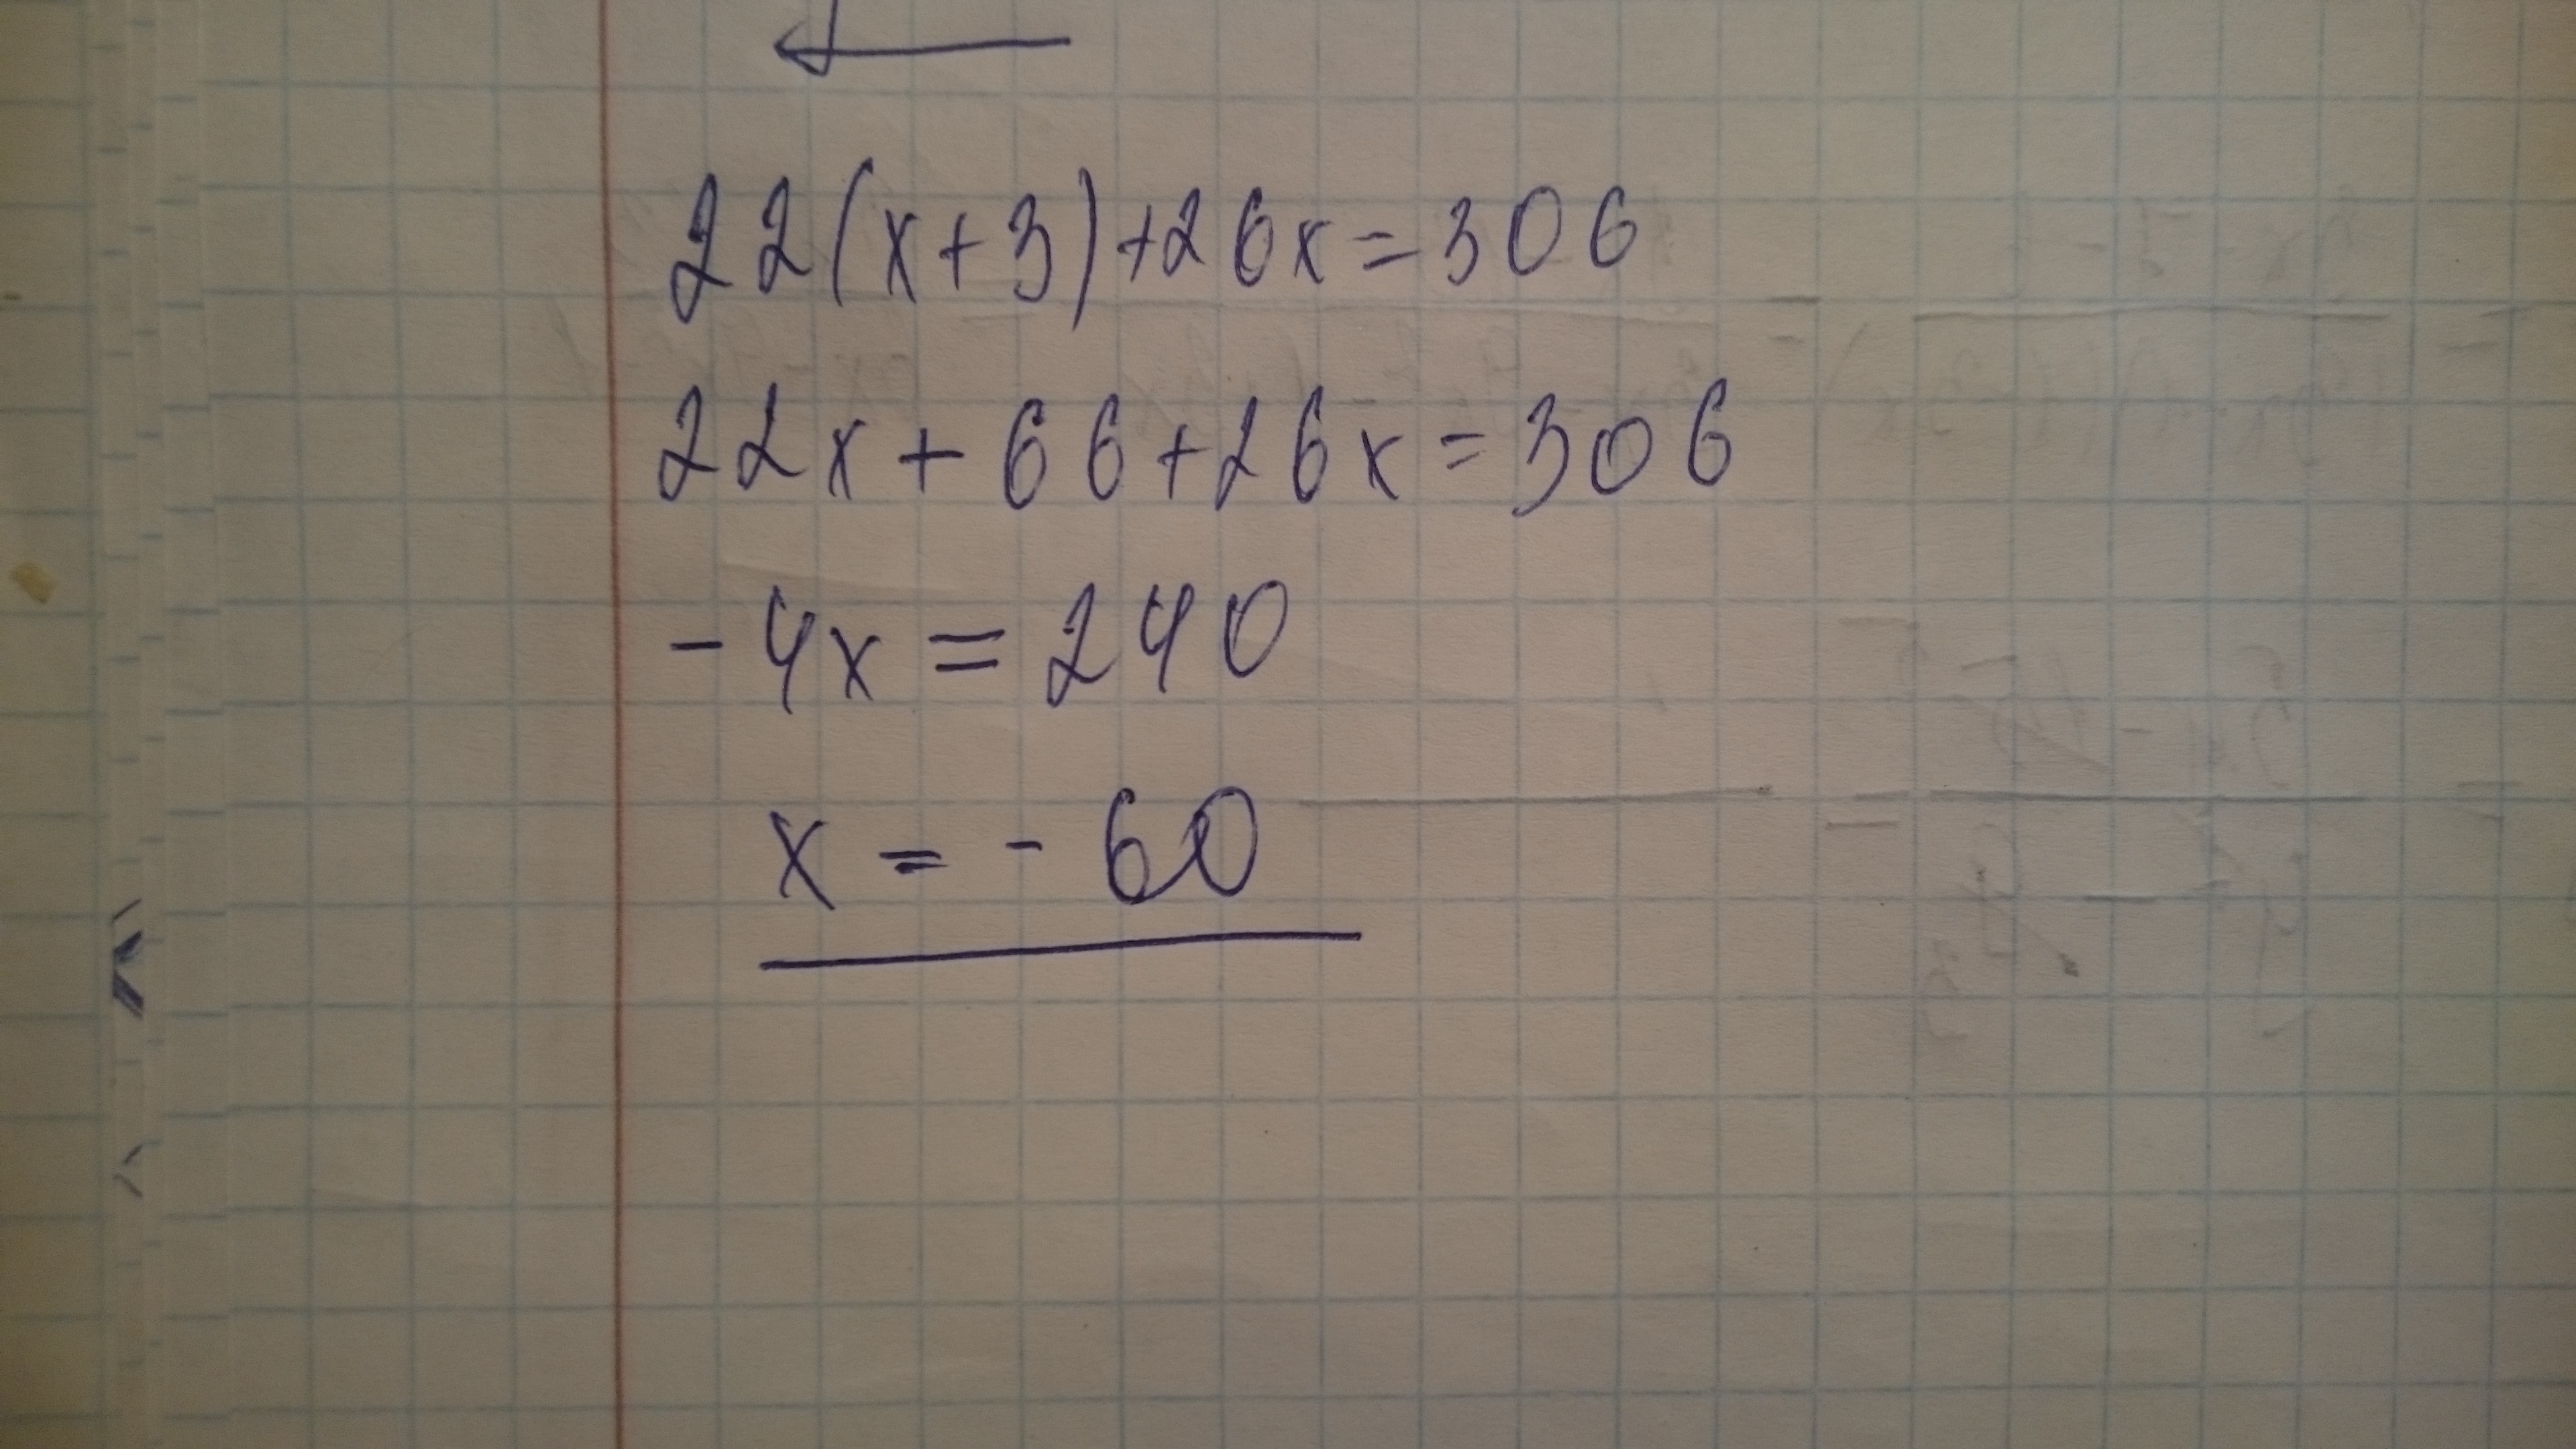 22(x+3)+26x=306
22x+66+26x=306
-4x=240
x=-60